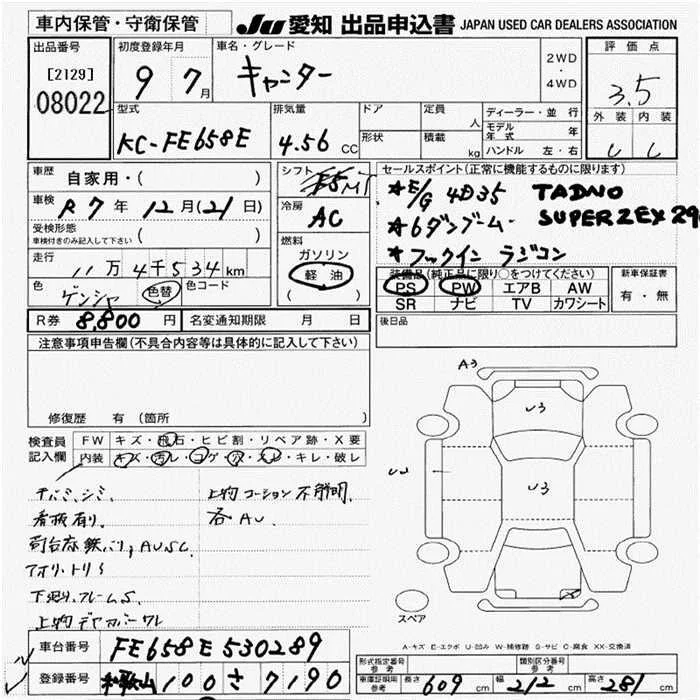 車内保管・守衛保管
JU 愛知 出品申込書 JAPAN USED CAR DEALERS ASSOCIATION
出品番号
[2129]
08022
初度登録年月
9 7月
車名・グレード
キャンター
2WD
・
4WD
評価点
3.5
外装 内装
型式
KC-FE658E
排気量
4.56 CC
ドア
形状
定員
人
積載
kg
ディーラー・並行
モデル年式 年
ハンドル 左・右
車歴
自家用・( )
車検
R7年 12月(21日)
受検形態
車検付きのみ記入して下さい ( )
走行
11万4千534km
色
ゲンシャ
色替
色コード
シフト
F5MT
冷房
AC
燃料
ガソリン
軽油
( )
セールスポイント(正常に機能するものに限ります)
★E/G 4D35 TADNO
★6ダンブーム SUPER ZEX 29
★フックイン ラジコン
装備品(純正品に限り○をつけてください)
PS PW エアB AW
SR ナビ TV カワシート
新車保証書
有・無
R券 8,800円
名変通知期限 月 日
後日品
注意事項申告欄(不具合内容等は具体的に記入して下さい)
修復歴 有(箇所 )
検査員記入欄
FW キズ・飛石・ヒビ割・リペア跡・X要
内装 キズ・汚レ・コゲ・穴・スレ・キレ・破レ
看板有り、
各AU、
アオリ・トリミ
下廻り、フレームS、
A3
U3
U3
スペア
A-キズ E-エクボ U-凹み W-補修跡 S-サビ C-腐食 XX-交換済
車台番号 FE658E530289
登録番号 和歌山 100 さ 7190
形式指定番号
参考
類別区分番号
参考
車庫証明用
参考
長さ 609 cm 幅 212 cm 高さ 281 cm